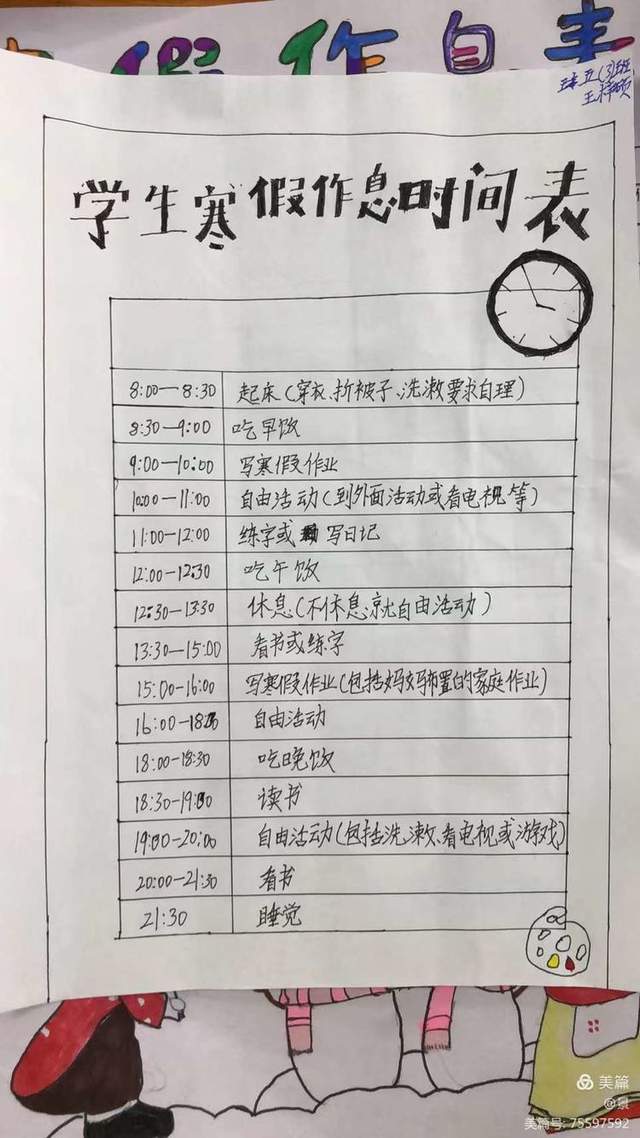 假作息表
五(3)班
王梓硕
学生寒假作息时间表
8:00—8:30 起床(穿衣、折被子、洗漱要求自理)
8:30-9:00 吃早饭
9:00-10:00 写寒假作业
10:00-11:00 自由活动(到外面活动或看电视等)
11:00-12:00 练字或写日记
12:00-12:30 吃午饭
12:30-13:30 休息(不休息就自由活动)
13:30-15:00 看书或练字
15:00-16:00 写寒假作业(包括妈妈布置的家庭作业)
16:00-18:00 自由活动
18:00-18:30 吃晚饭
18:30-19:00 读书
19:00-20:00 自由活动(包括洗漱、看电视或游戏)
20:00-21:30 看书
21:30 睡觉
美篇
@景
美篇号:75597592